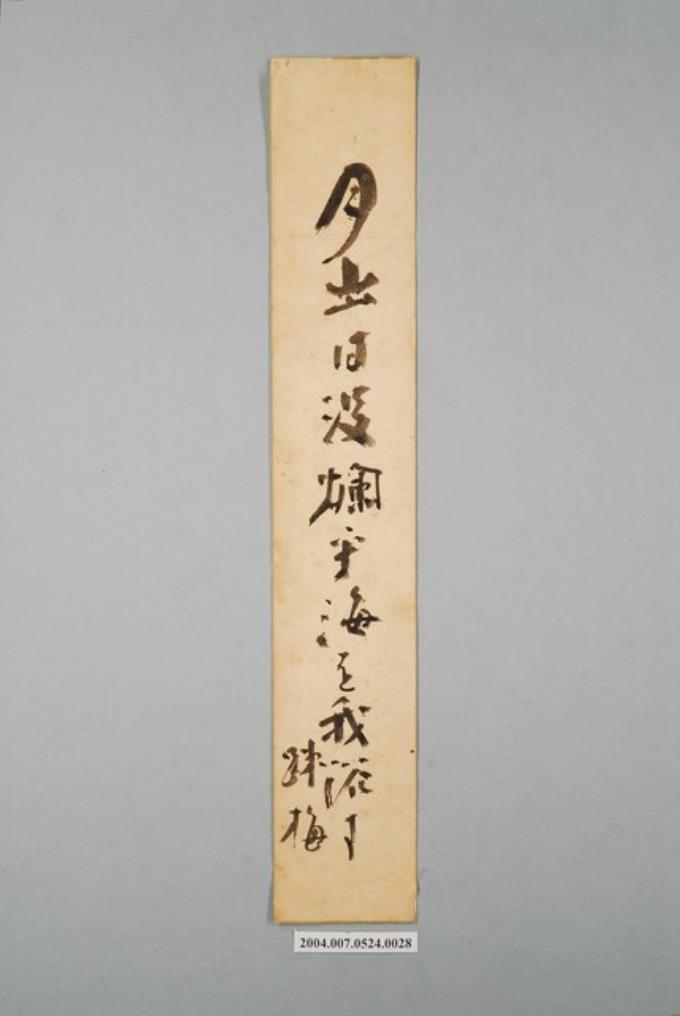 月出日没爛平海を我浴す
疎梅
2004.007.0524.0028